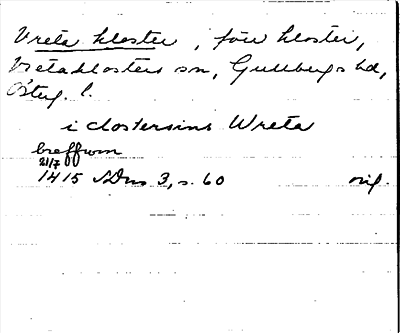 Vreta kloster, förr kloster,
Vretaklosters sn, Gullbergs hd,
Österg. l.
i clostersins Wreta
breffwm
21/7
1415 SDns 3, s. 60 orig.